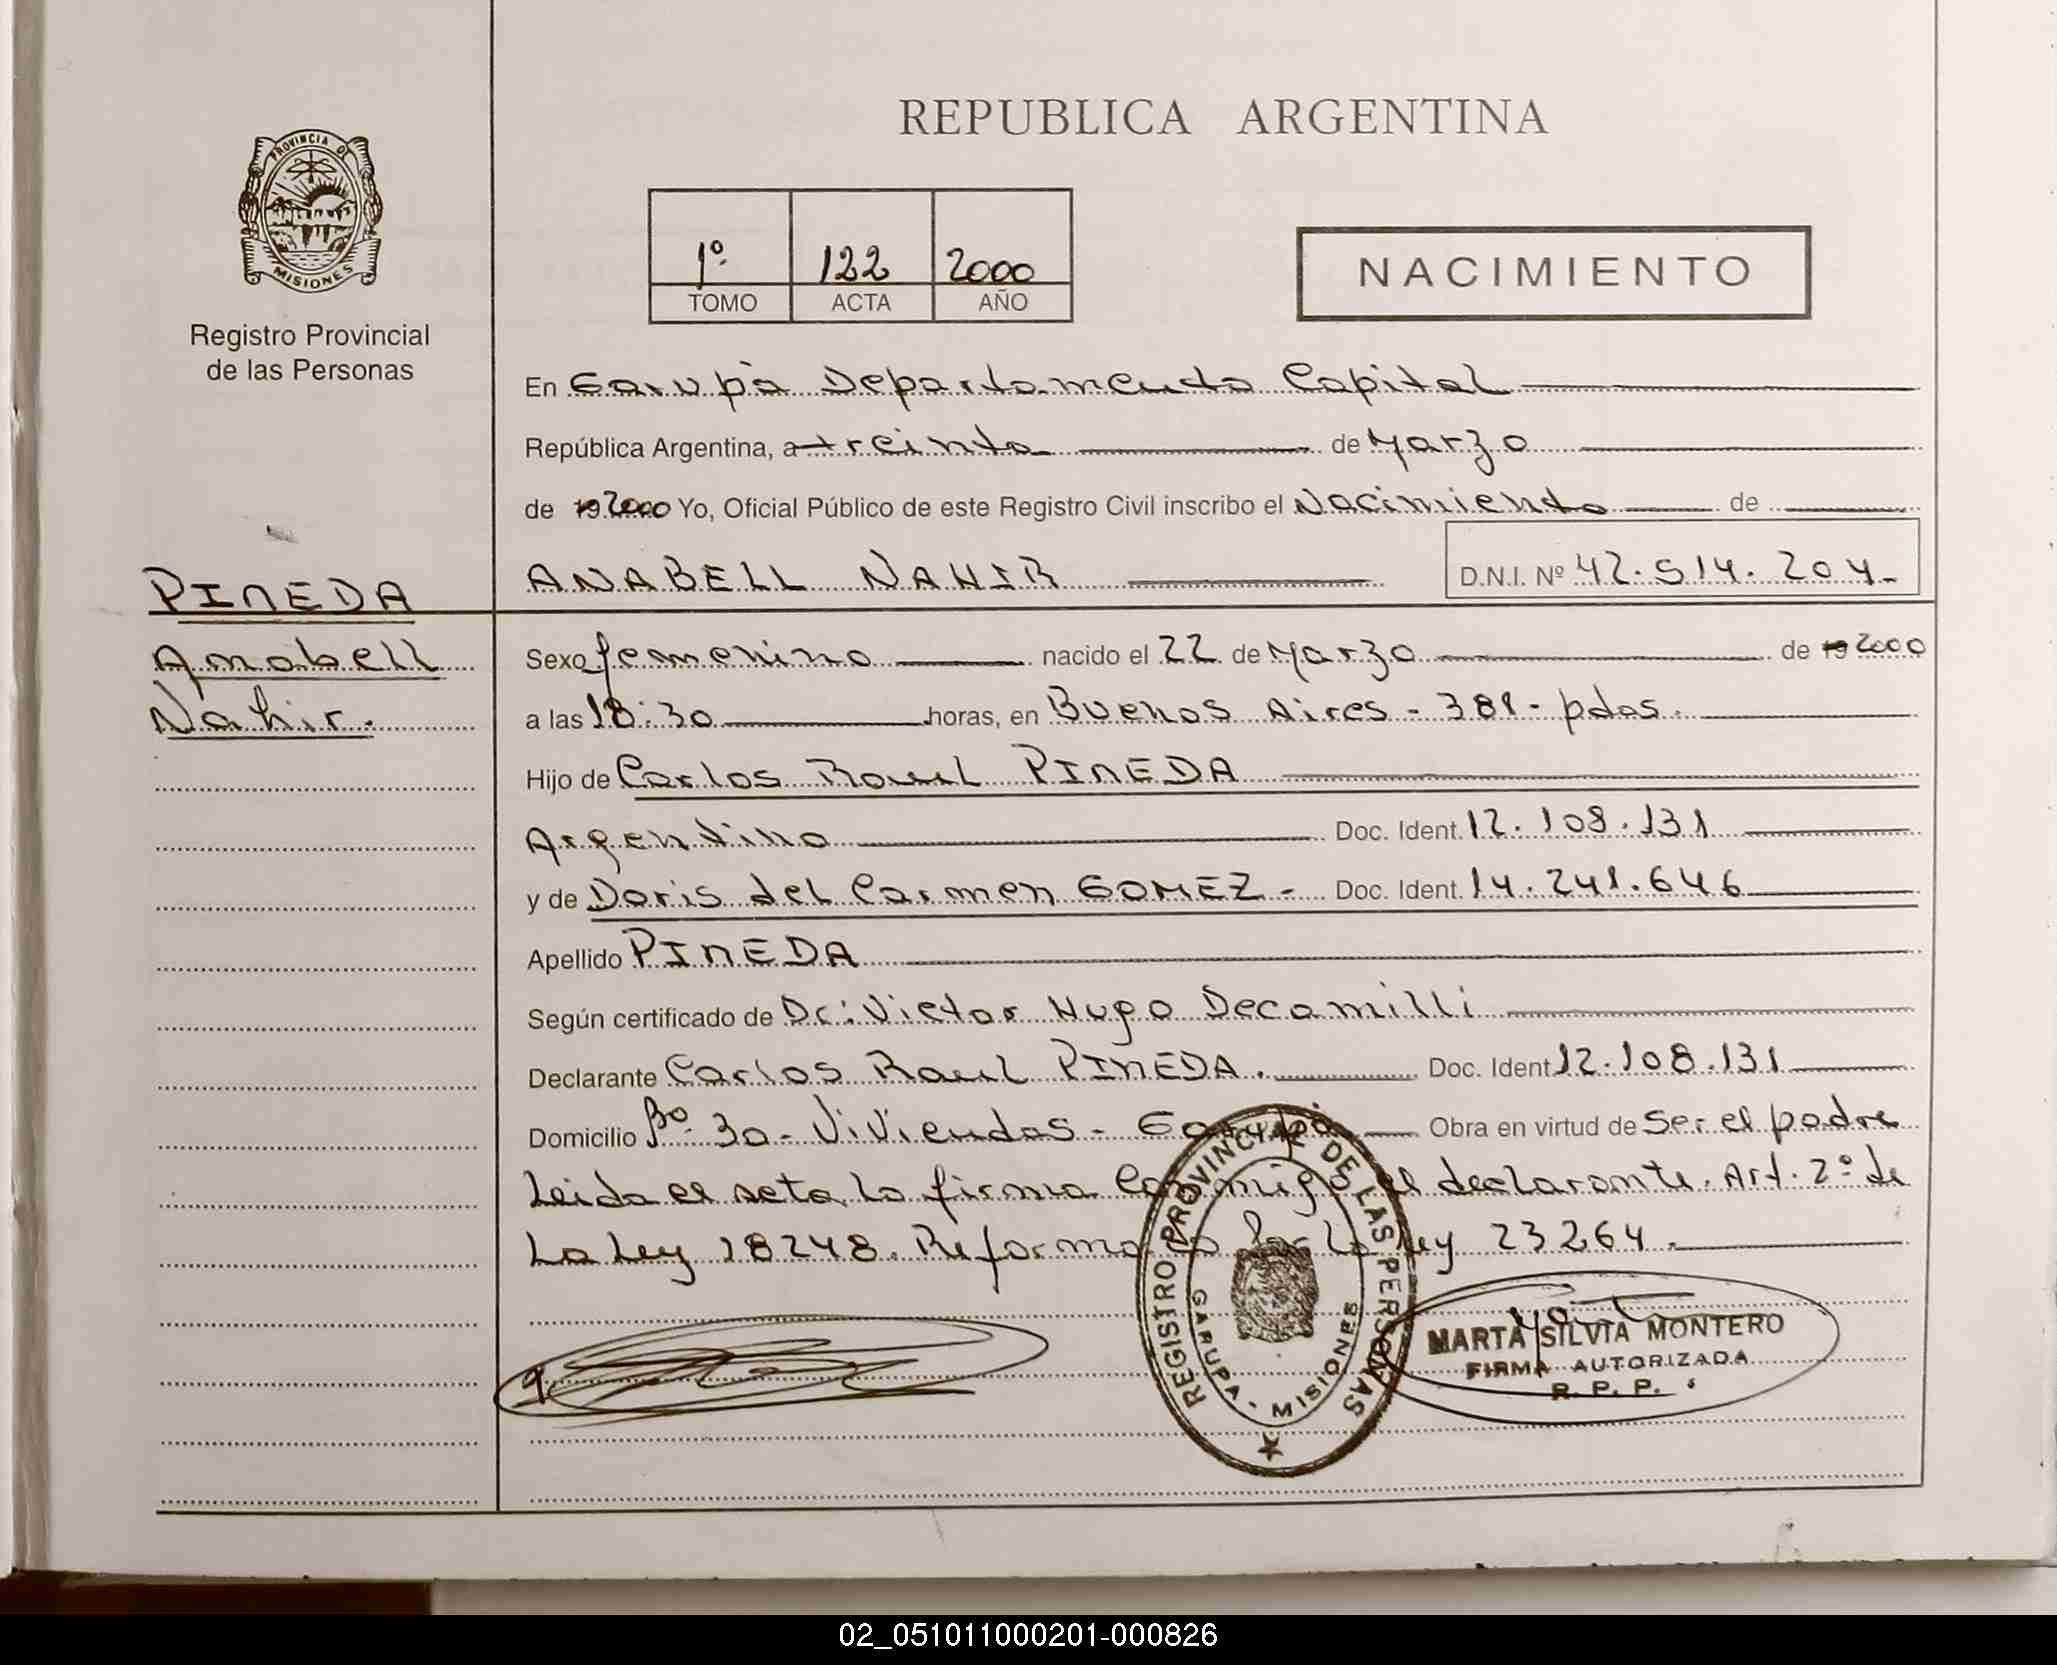 REPUBLICA ARGENTINA
PROVINCIA DE
MISIONES
Registro Provincial
de las Personas
1º 122 2000
TOMO ACTA AÑO
NACIMIENTO
En Garupá Departamento Capital
República Argentina, a treinta de Marzo
de 19 2000 Yo, Oficial Público de este Registro Civil inscribo el Nacimiento de
ANABELL NAHIR D.N.I. Nº 42.514.204.-
PINEDA
Anabell
Nahir.
Sexo femenino nacido el 22 de Marzo de 19 2000
a las 18:30 horas, en Buenos Aires - 381 - pdas.
Hijo de Carlos Raul PINEDA
Argentino Doc. Ident. 12.108.131
y de Doris del Carmen GOMEZ - Doc. Ident. 14.241.646
Apellido PINEDA
Según certificado de Dr: Victor Hugo Decamilli
Declarante Carlos Raul PINEDA. Doc. Ident. 12.108.131
Domicilio Bº 30 - Viviendas - Garupá Obra en virtud de Ser el padre
Leida el acta la firma Conmigo el declarante. Art. 2º de
La Ley 18248. Reformado Por La Ley 23264.
REGISTRO PROVINCIAL DE LAS PERSONAS
GARUPA - MISIONES
MARTA SILVIA MONTERO
FIRMA AUTORIZADA
R. P. P.
02_051011000201-000826